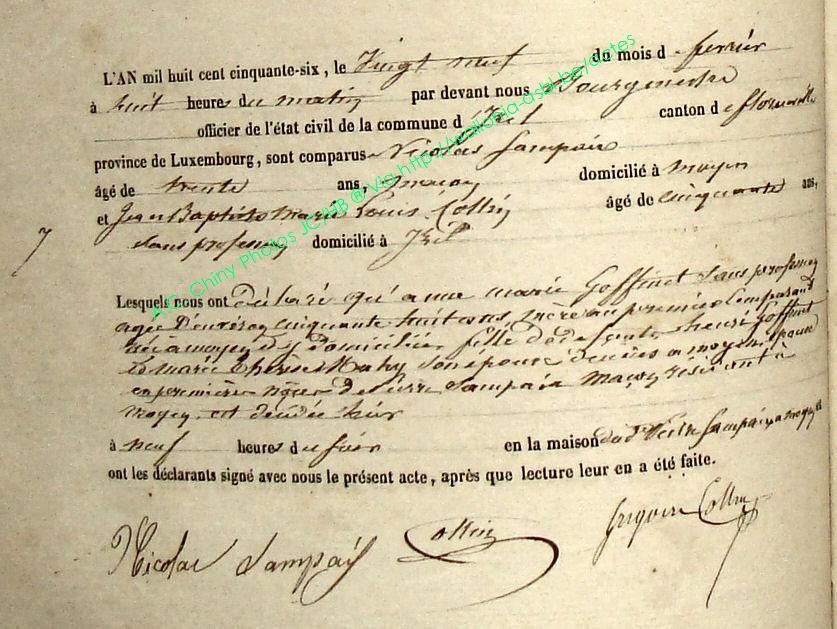 L'AN mil huit cent cinquante-six, le Vingt neuf du mois d e fevrier
à huit heures du matin par devant nous Bourgmestre
officier de l'état civil de la commune d'Izel canton de florenville
province de Luxembourg, sont comparus Nicolas Sampaix
âgé de trente ans, maçon domicilié à moyen
et Jean Baptiste Marie Louis Collin âgé de cinquante ans,
7 sans profession domicilié à Izel
Lesquels nous ont déclaré qu'anne marie Goffinet sans profession
agée d'environ cinquante huit ans mère au premier Comparant
née à moyen et y domiciliée fille de défunts henri Goffinet
et marie thérèse Mahy son épouse décédés a moyen épouse
en première noces de Pierre Sampaix maçon résidant à
moyen est décédée hier
à neuf heures du soir en la maison du dt Pierre Sampaix a moyen et
ont les déclarants signé avec nous le présent acte, après que lecture leur en a été faite.
Nicolas Sampaix Collin Gregoire Collin
A.G. Chiny Photos JC/HB ® Via http://wallonia-asbl.be/actes